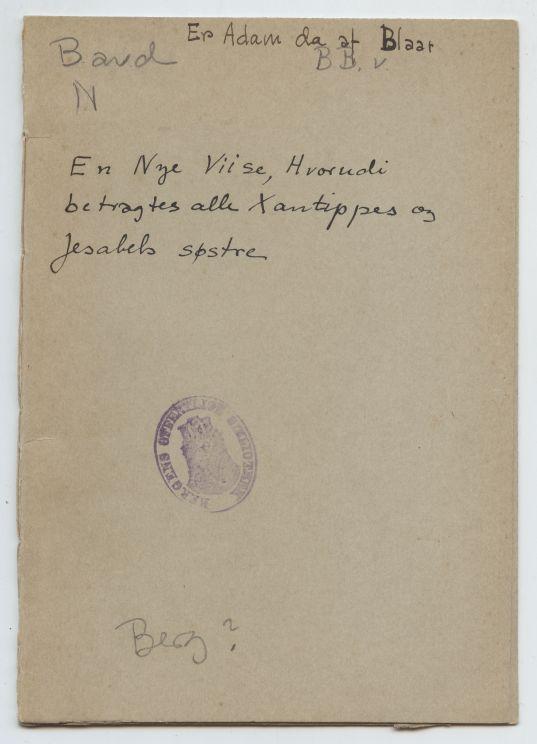 Er Adam da af Blaar
Band
B.B. v.
N
En Nye Viise, Hvorudi
betragtes alle Xantippes og
Jesabels søstre
BERGENS OFFENTLIGE BIBLIOTHEK
Berg?